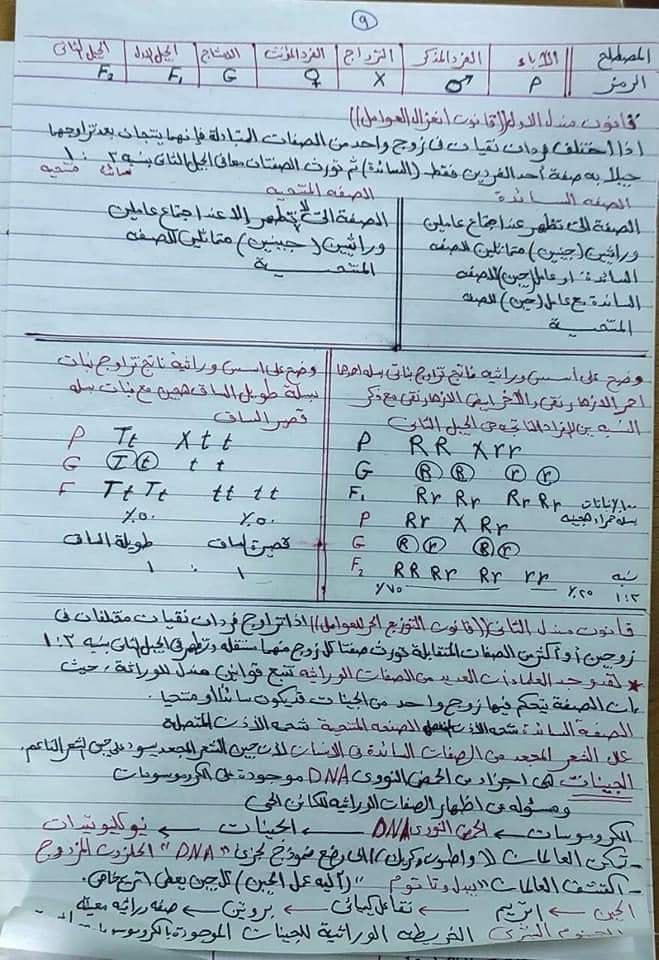 ٩
المصطلح | الآباء | الفرد المذكر | التزاوج | الفرد المؤنث | الامشاج | الجيل الاول | الجيل الثانى
الرمز | P | ♂ | X | ♀ | G | F₁ | F₂
قانون مندل الاول ((قانون انعزال العوامل))
اذا اختلف فردان نقيان فى زوج واحد من الصفات المتبادلة فإنهما ينتجان بعد تزاوجهما
جيلا به صفة أحد الفردين فقط (السائدة) ثم تورث الصفتان معا فى الجيل الثانى بنسبة ٣ : ١
سائد متنحية
الصفه السائدة
الصفة التى تظهر عند اجتماع عاملين
وراثيين (جينين) متماثلين للصفه
السائدة او عامل (جين) للصفه
السائدة مع عامل (جين) للصفه
المتنحية
الصفه المتنحيه
الصفة التى لا تظهر إلا عند اجتماع عاملين
وراثيين (جينين) متماثلين للصفه
المتنحية
وضح على أسس وراثيه ناتج تزاوج نباتى بسله احدهما
احمر الازهار نقى والآخر ابيض الازهار نقى مع ذكر
النسبه بين الافراد الناتجه فى الجيل الثانى
P RR X rr
G R R r r
F₁ Rr Rr Rr Rr ١٠٠٪ نباتات
بسله حمراء هجينه
P Rr X Rr
G R r R r
F₂ RR Rr Rr rr نسبه
٪٧٥ ٪٢٥ ٣:١
وضح على اسس وراثية ناتج تزاوج نبات
بسلة طويل الساق هجين مع نبات بسله
قصير الساق
P Tt X t t
G T t t t
F Tt Tt tt tt
٪٥٠ ٪٥٠
طويلة الساق قصيرة الساق
١ : ١
قانون مندل الثانى ((قانون التوزيع الحر للعوامل)) اذا تزاوج فردان نقيان مختلفان فى
زوجين أو أكثر من الصفات المتقابلة تورث صفتا كل زوج منهما مستقله وتظهر فى الجيل الثانى بنسبه ٣:١
★ لقد وجد العلماء أن العديد من الصفات الوراثيه تتبع قوانين مندل للوراثة، حيث
أن الصفة يتحكم فيها زوج واحد من الجينات قد يكون سائدا أو متنحيا.
الصفة السائدة: شحمه الاذن الصفه المتنحية شحمه الاذن المتصلة
علل الشعر المجعد من الصفات السائدة فى الانسان لأن جين الشعر المجعد يسود على جين الشعر الناعم.
الجينات هى اجزاء من الحمض النووى DNA موجودة على الكروموسومات
ومسئوله عن اظهار الصفات الوراثيه للكائن الحى
الكروموسومات ← الحمض النووى DNA ← الجينات ← نوكليوتيدات
- تمكن العالمان ((واطسون وكريك)) الى وضع نموذج لجزئ "DNA" الحلزون المزدوج
- اكتشف العالمان "بيدل وتاتوم" (آليه عمل الجين) كل جين يعطى انزيم خاص.
الجين ← انزيم ← تفاعل كيميائى ← بروتين ← صفه وراثيه معينة
الجينوم البشرى الخريطه الوراثية للجينات الموجودة بالكروموسومات